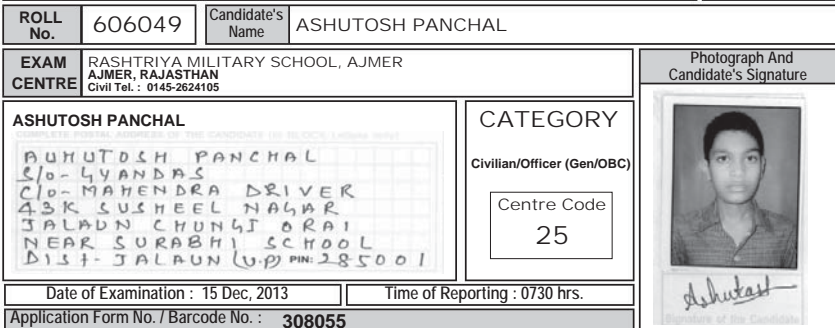 ROLL No. 606049 Candidate's Name ASHUTOSH PANCHAL
EXAM CENTRE RASHTRIYA MILITARY SCHOOL, AJMER
AJMER, RAJASTHAN
Civil Tel. : 0145-2624105
Photograph And Candidate's Signature
ASHUTOSH PANCHAL
COMPLETE POSTAL ADDRESS OF THE CANDIDATE (in BLOCK Letters only)
AUHUTOSH PANCHAL
S/o- GYANDAS
C/o- MAHENDRA DRIVER
43K SUSHEEL NAGAR
JALAUN CHUNGI ORAI
NEAR SURABHI SCHOOL
DIST- JALAUN (U.P) PIN: 285001
CATEGORY
Civilian/Officer (Gen/OBC)
Centre Code
25
Ashutosh
Signature of the Candidate
Date of Examination : 15 Dec, 2013 Time of Reporting : 0730 hrs.
Application Form No. / Barcode No. : 308055